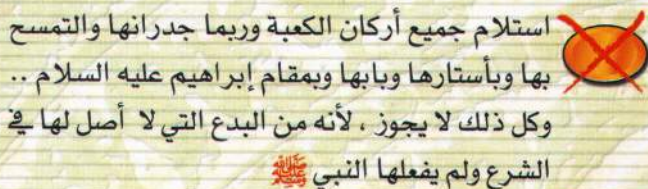 استلام جميع أركان الكعبة وربما جدرانها والتمسح
بها وبأستارها وبابها وبمقام إبراهيم عليه السلام ..
وكل ذلك لا يجوز ، لأنه من البدع التي لا أصل لها في
الشرع ولم يفعلها النبي ﷺ